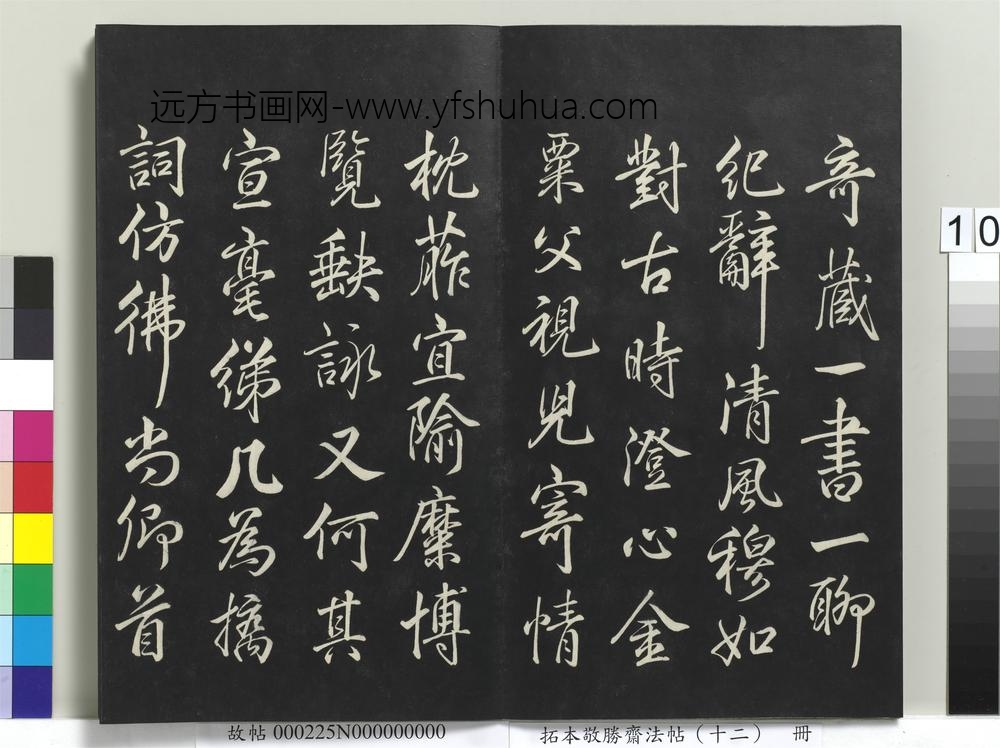 远方书画网-www.yfshuhua.com
奇藏一書一聊
紀辭清風穆如
對古時澄心金
粟父視兒寄情
枕葄宜隃糜博
覽歃詠又何其
宣毫綈几為擒
詞仿彿尚卿首
10
故帖 000225N000000000
拓本敬勝齋法帖（十二） 冊